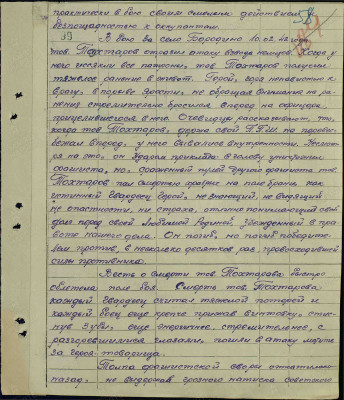 практически в бою своим смелым действием и
беспощадностью к оккупантам.
В бою за село Бородино 10.02.42 года
тов. Тохтаров отразил атаку взвода немцев. Когда у
него иссякли все патроны, тов. Тохтаров получил
тяжелое ранение в живот. Герой, горя ненавистью к
врагу, в порыве ярости, не обращая внимания на ра-
нения стремительно бросился вперед на офицера,
прицелившегося в него. Очевидцы рассказывают, что,
когда тов. Тохтаров, держа свой П.П.Ш. на
бежал вперед, у него вывались внутренности. Несмот-
ря на это, он ударом приклада в голову уничтожил
фашиста, но, сраженный пулей другого фашиста тов.
Тохтаров пал смертью храбрых на поле брани, как
истинный гвардеец герой, не знающий, не видящий
ни опасности, ни страха, отлично понимающий свой
долг перед своей любимой Родиной, убежденный в пра-
воте нашего дела. Он погиб, но погиб победите-
лем против, в несколько десятков раз, превосходившей
силы противника.
Весть о смерти тов. Тохтарова быстро
облетела поле боя. Смерть тов. Тохтарова
каждый гвардеец считал тяжелой потерей и
каждый боец еще крепче прижав винтовку, стис-
нув зубы, еще энергичнее, стремительнее, с
разгоревшимися глазами, пошли в атаку мстить
за героя-товарища.
Толпа фашистской своры
назад, не выдержав грозного натиска советских